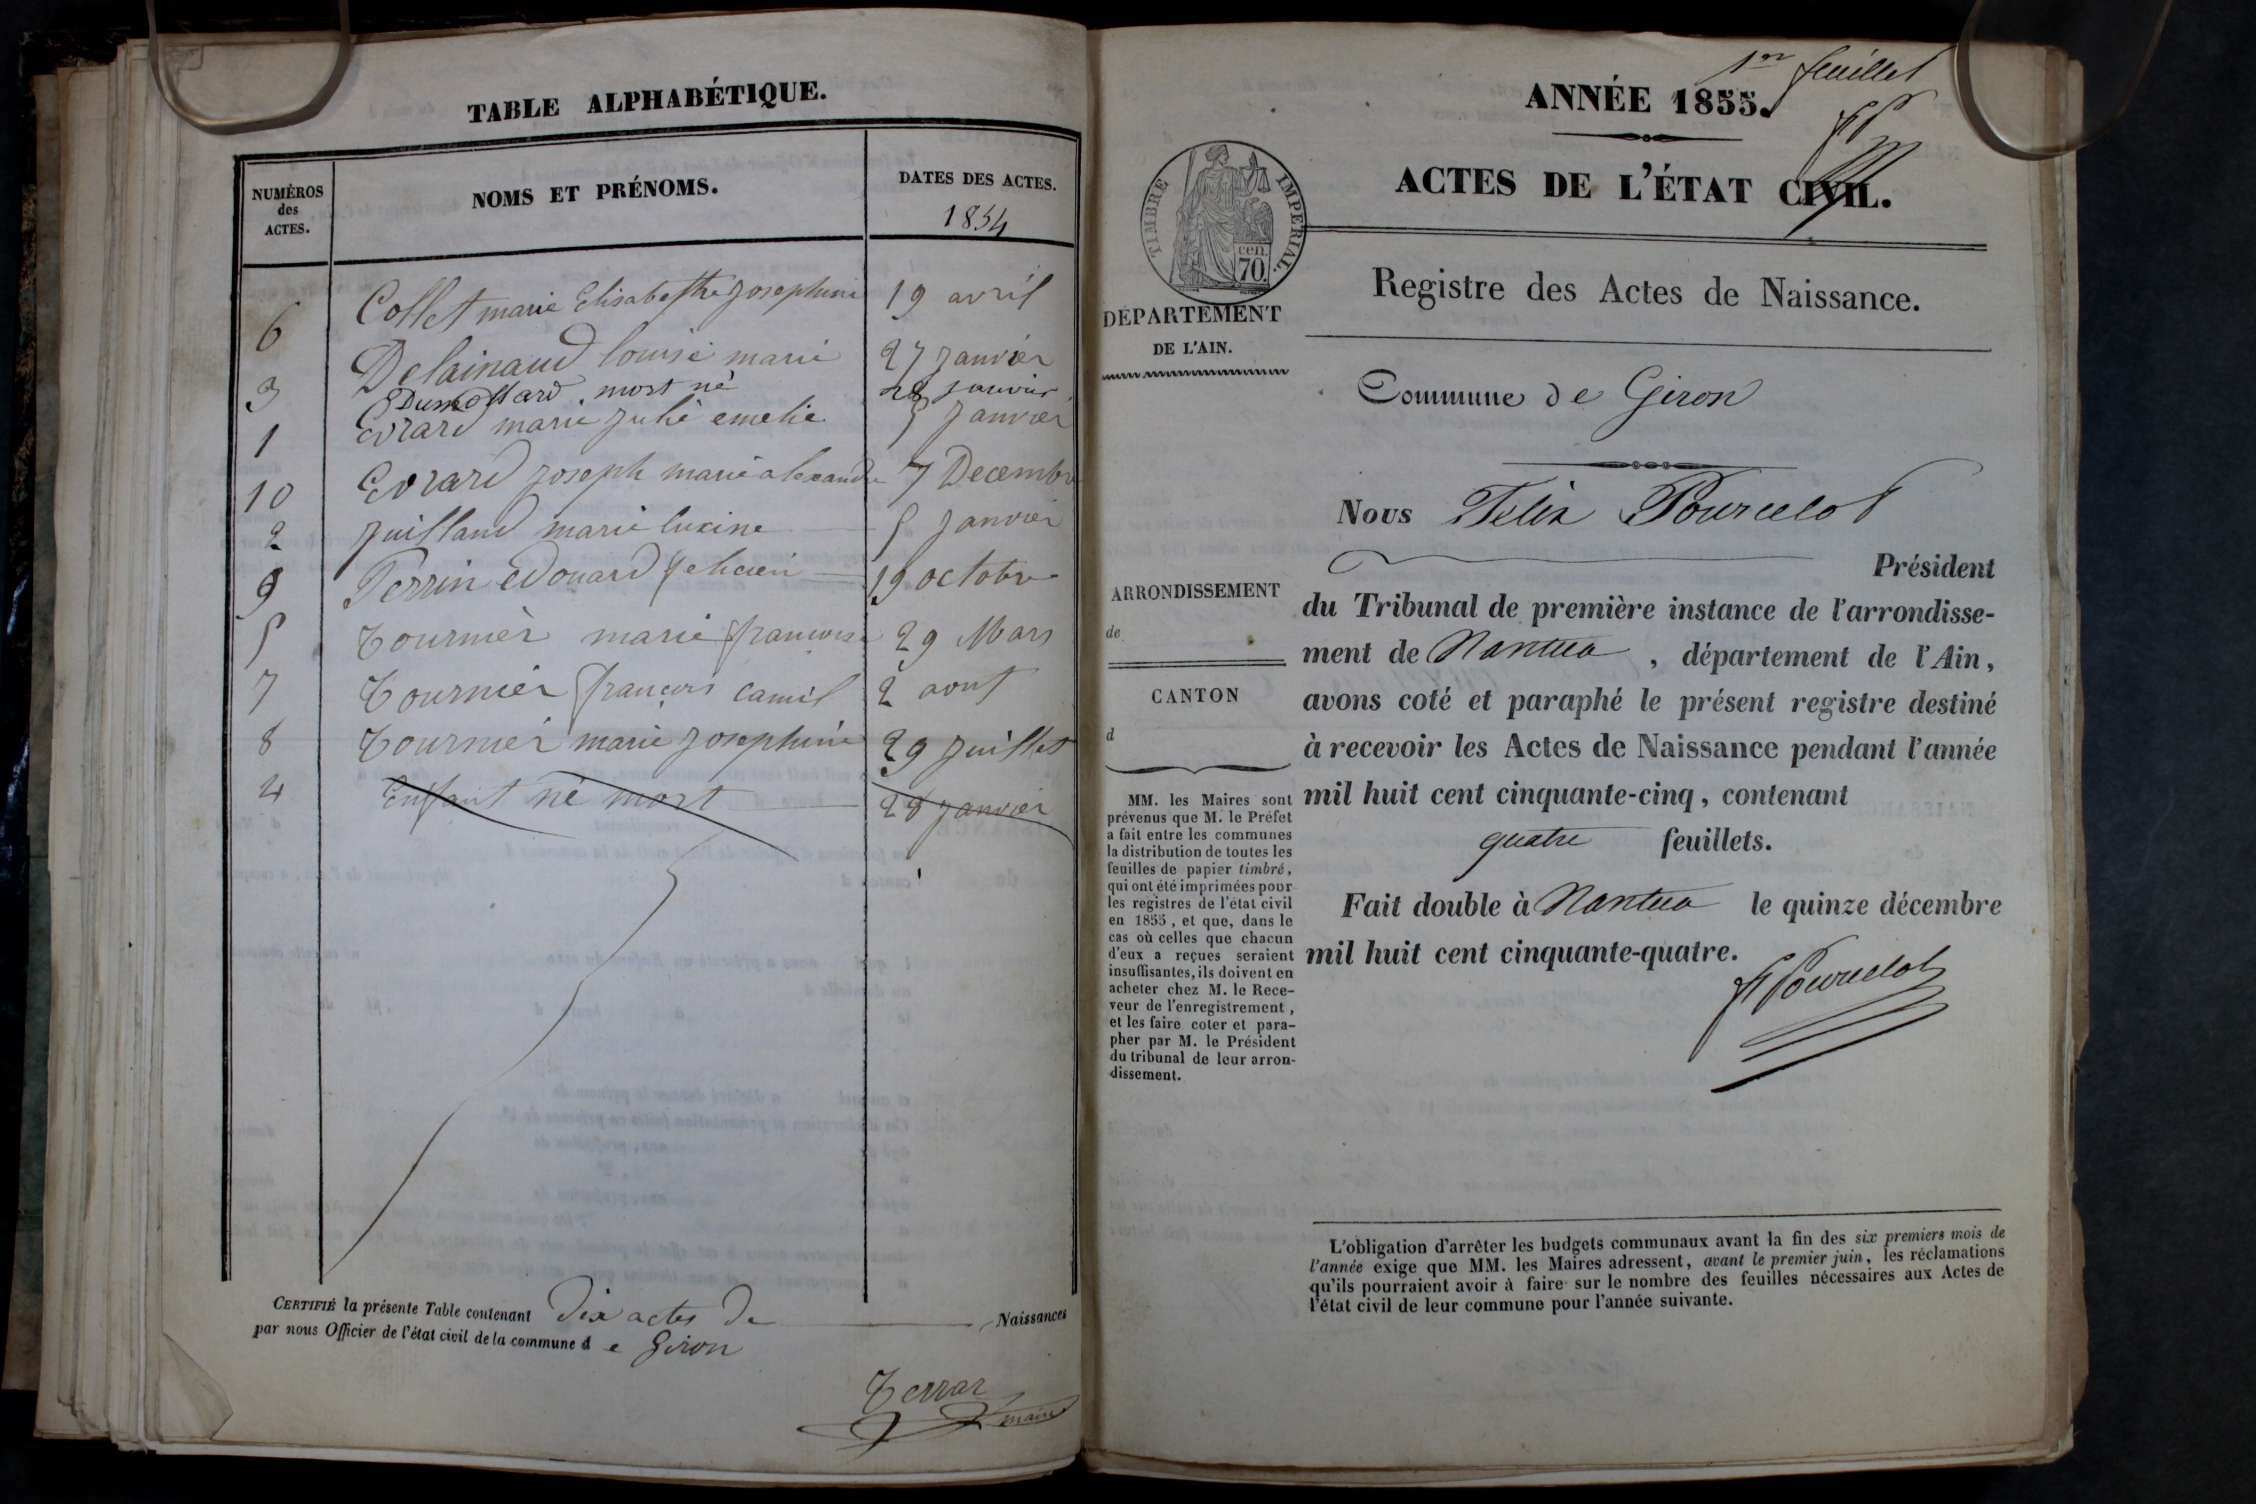 TABLE ALPHABÉTIQUE.
NUMÉROS des ACTES. NOMS ET PRÉNOMS. DATES DES ACTES.
1854
6 Collet marie Elisabethe josephine 19 avril
3 Delainaud louise marie 27 janvier
Dumollard mort né 28 janvier
1 Evrard marie julie emelie 5 janvier
10 Evrard joseph marie alexandre 7 Decembre
2 juilland marie luxine 5 janvier
9 Perrin edouard felicien 19 octobre
5 Tournier marie françoise 29 Mars
7 Tournier françois camil 2 aout
8 Tournier marie josephine 29 juillet
4 Enffant né mort 28 janvier
CERTIFIÉ la présente Table contenant dix actes de Naissances
par nous Officier de l'état civil de la commune d e Giron
Terraz
maire
1er feuillet
ANNÉE 1855.
ACTES DE L'ÉTAT CIVIL.
TIMBRE IMPÉRIAL.
cen.
70
Registre des Actes de Naissance.
DÉPARTEMENT
DE L'AIN.
Commune de Giron
Nous Félix Pourcelot
Président
ARRONDISSEMENT
de
CANTON
d
du Tribunal de première instance de l'arrondisse-
ment de Nantua, département de l'Ain,
avons coté et paraphé le présent registre destiné
à recevoir les Actes de Naissance pendant l'année
mil huit cent cinquante-cinq, contenant
quatre feuillets.
Fait double à Nantua le quinze décembre
mil huit cent cinquante-quatre.
F Pourcelot
MM. les Maires sont
prévenus que M. le Préfet
a fait entre les communes
la distribution de toutes les
feuilles de papier timbré,
qui ont été imprimées pour
les registres de l'état civil
en 1855, et que, dans le
cas où celles que chacun
d'eux a reçues seraient
insuffisantes, ils doivent en
acheter chez M. le Rece-
veur de l'enregistrement,
et les faire coter et para-
pher par M. le Président
du tribunal de leur arron-
dissement.
L'obligation d'arrêter les budgets communaux avant la fin des six premiers mois de
l'année exige que MM. les Maires adressent, avant le premier juin, les réclamations
qu'ils pourraient avoir à faire sur le nombre des feuilles nécessaires aux Actes de
l'état civil de leur commune pour l'année suivante.